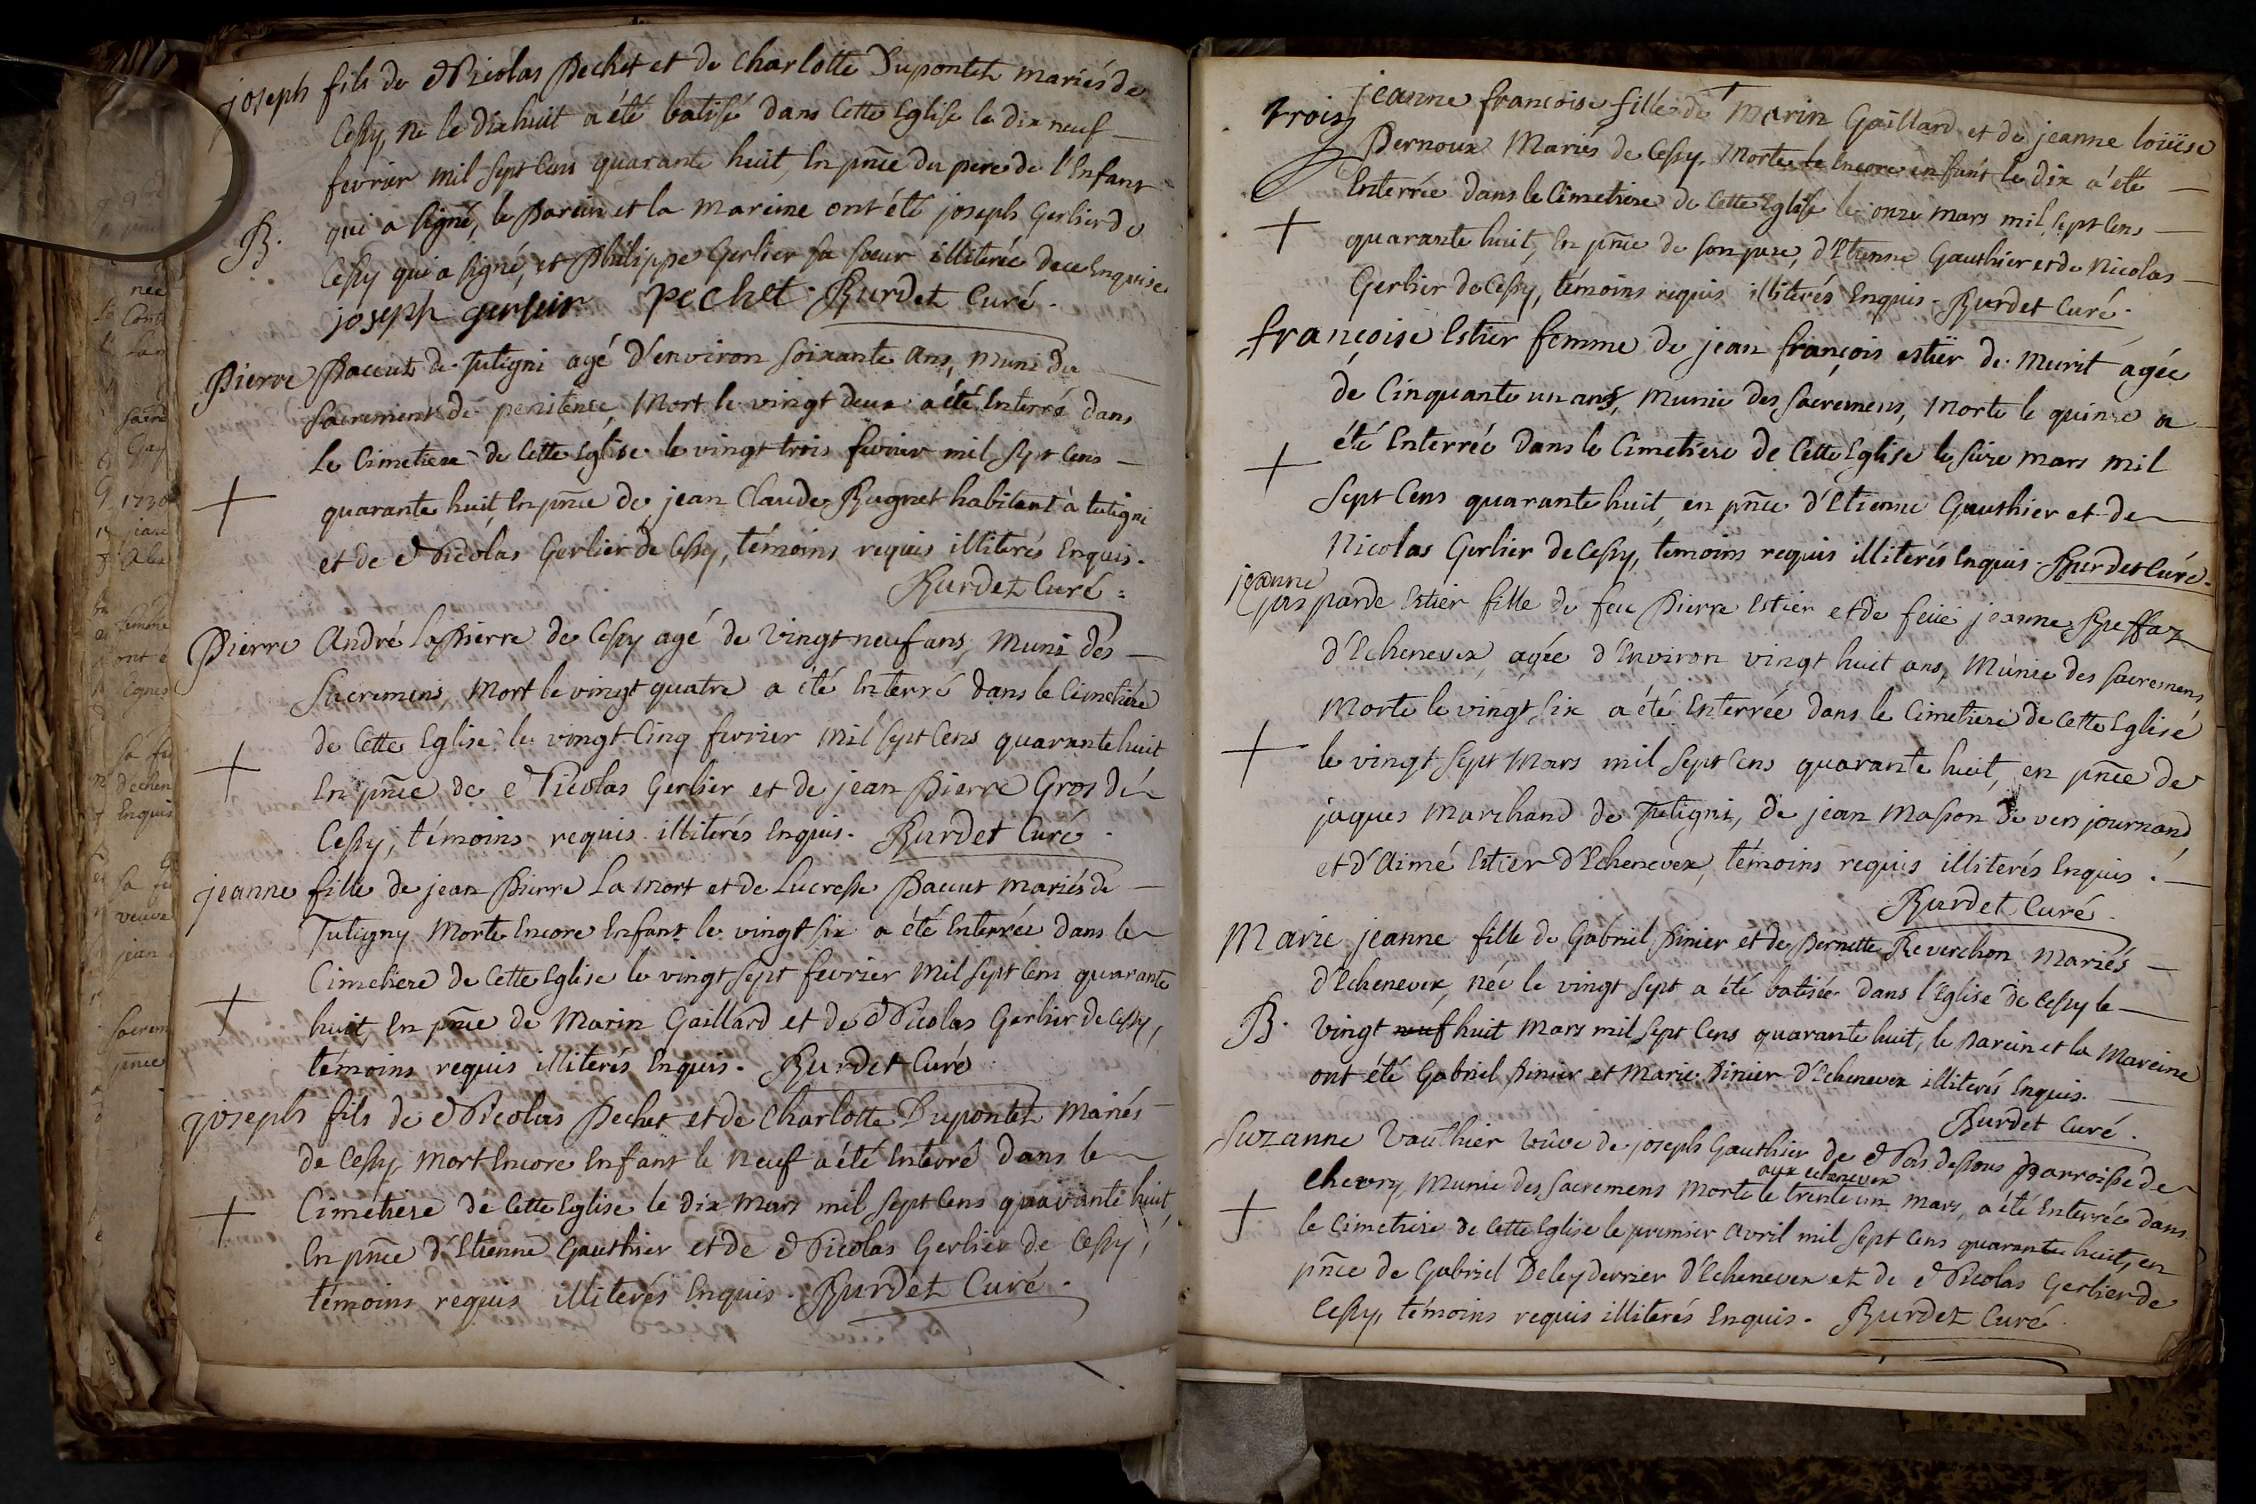 joseph fils de Nicolas Pechet et de Charlotte Dupontet mariés de
Cessy, né le dix huit a été batisé dans Cette Eglise le dix neuf
fevrier mil sept Cens quarante huit, En pnce du pere de l'Enfant
B. qui a signé, le Parein et la Mareine ont été joseph Gerlier de
Cessy qui a signé, et Philippe Gerlier sa Soeur illiterée de ce Enquise.
joseph gerleir pechet Burdet Curé.
Pierre Paccut de Tutigni agé d'environ Soixante Ans, muni du
Sacrement de penitence, Mort le vingt deux a été Enterré dans
Le Cimetiere de Cette Eglise le vingt trois fevrier mil Sept Cens
+ quarante huit, En pnce de jean Claude Bugnet habitant à tutigni
et de Nicolas Gerlier de Cessy, témoins requis illiterés Enquis.
Burdet Curé.
Pierre André LaPierre de Cessy agé de Vingt neuf ans, Muni des
Sacremens, Mort le vingt quatre a été Enterré dans le Cimetiére
de Cette Eglise le vingt Cinq fevrier Mil Sept Cens quarante huit
+ En pnce de Nicolas Gerlier et de jean Pierre Gros de
Cessy, témoins requis illiterés Enquis. Burdet Curé.
jeanne fille de jean Pierre La Mort et de Lucresse Pacut mariés de
Tutigny Morte Encore Enfant le vingt Six a été Enterrée dans le
Cimetiere de Cette Eglise le vingt Sept fevrier Mil Sept Cens quarante
+ huit, En pnce de Marin Gaillard et de Nicolas Gerlier de Cessy,
témoins requis illiterés Enquis. Burdet Curé
joseph fils de Nicolas Pechet et de Charlotte Dupontet Mariés
de Cessy, Mort Encore Enfant le Neuf a été Enterré dans le
+ Cimetiere de Cette Eglise le dix Mars mil Sept Cens quarante huit,
En pnce d'Etienne Gauthier et de Nicolas Gerlier de Cessy,
témoins requis illiterés Enquis. Burdet Curé.
trois jeanne francoise fille de Marin Gaillard et de jeanne loiiise
Pernoux Mariés de Cessy, Morte Encore enfant le dix a été
Enterrée dans le Cimetiere de Cette Eglise le onze mars mil sept Cens
+ quarante huit, En pnce de son pere, d'Etienne Gauthier et de Nicolas
Gerlier de Cessy, témoins requis illiterés Enquis. Burdet Curé.
françoise Estier femme de jean françois estier de Murit agée
de Cinquante un ans, Munie des Sacremens, Morte le quinze a
+ été Enterrée dans le Cimetiere de Cette Eglise le Seize mars mil
Sept Cens quarante huit, en pnce d'Etienne Gauthier et de
Nicolas Gerlier de Cessy, temoins requis illiterés Enquis. Burdet Curé.
jeanne
gasparde Estier fille de feu Pierre Estier et de feüe jeanne Reffaz
d'Echenevex, agée d'Environ vingt huit ans, Munie des Sacremens
Morte le vingt six a été Enterrée dans le Cimetiere de Cette Eglise
+ le vingt Sept Mars mil Sept Cens quarante huit, en pnce de
jaques Marchand de Tutigni, de jean Masson de vers journand,
et d'Aimé Estier d'Echenevex, témoins requis illiterés Enquis.
Burdet Curé.
Marie jeanne fille de Gabriel Pinier et de Pernette Reverchon Mariés
d'Echenevex, née le vingt Sept a été batisée dans l'Eglise de Cessy le
B. Vingt neuf huit Mars mil Sept Cens quarante huit, le Parein et la Mareine
ont été Gabriel Pinier et Marie Pinier d'Echenevex illiterés Enquis.
Burdet Curé.
Suzanne Vauthier Vûve de joseph Gauthier de Nas dessous Parroisse de
aux echenevex
Chevry, Munie des Sacremens Morte le trente un Mars, a été Enterrée dans
+ le Cimetiere de Cette Eglise le premier Avril mil Sept Cens quarante huit, en
pnce de Gabriel Deley derrier d'Echenevex et de Nicolas Gerlier de
Cessy, témoins requis illiterés Enquis. Burdet Curé